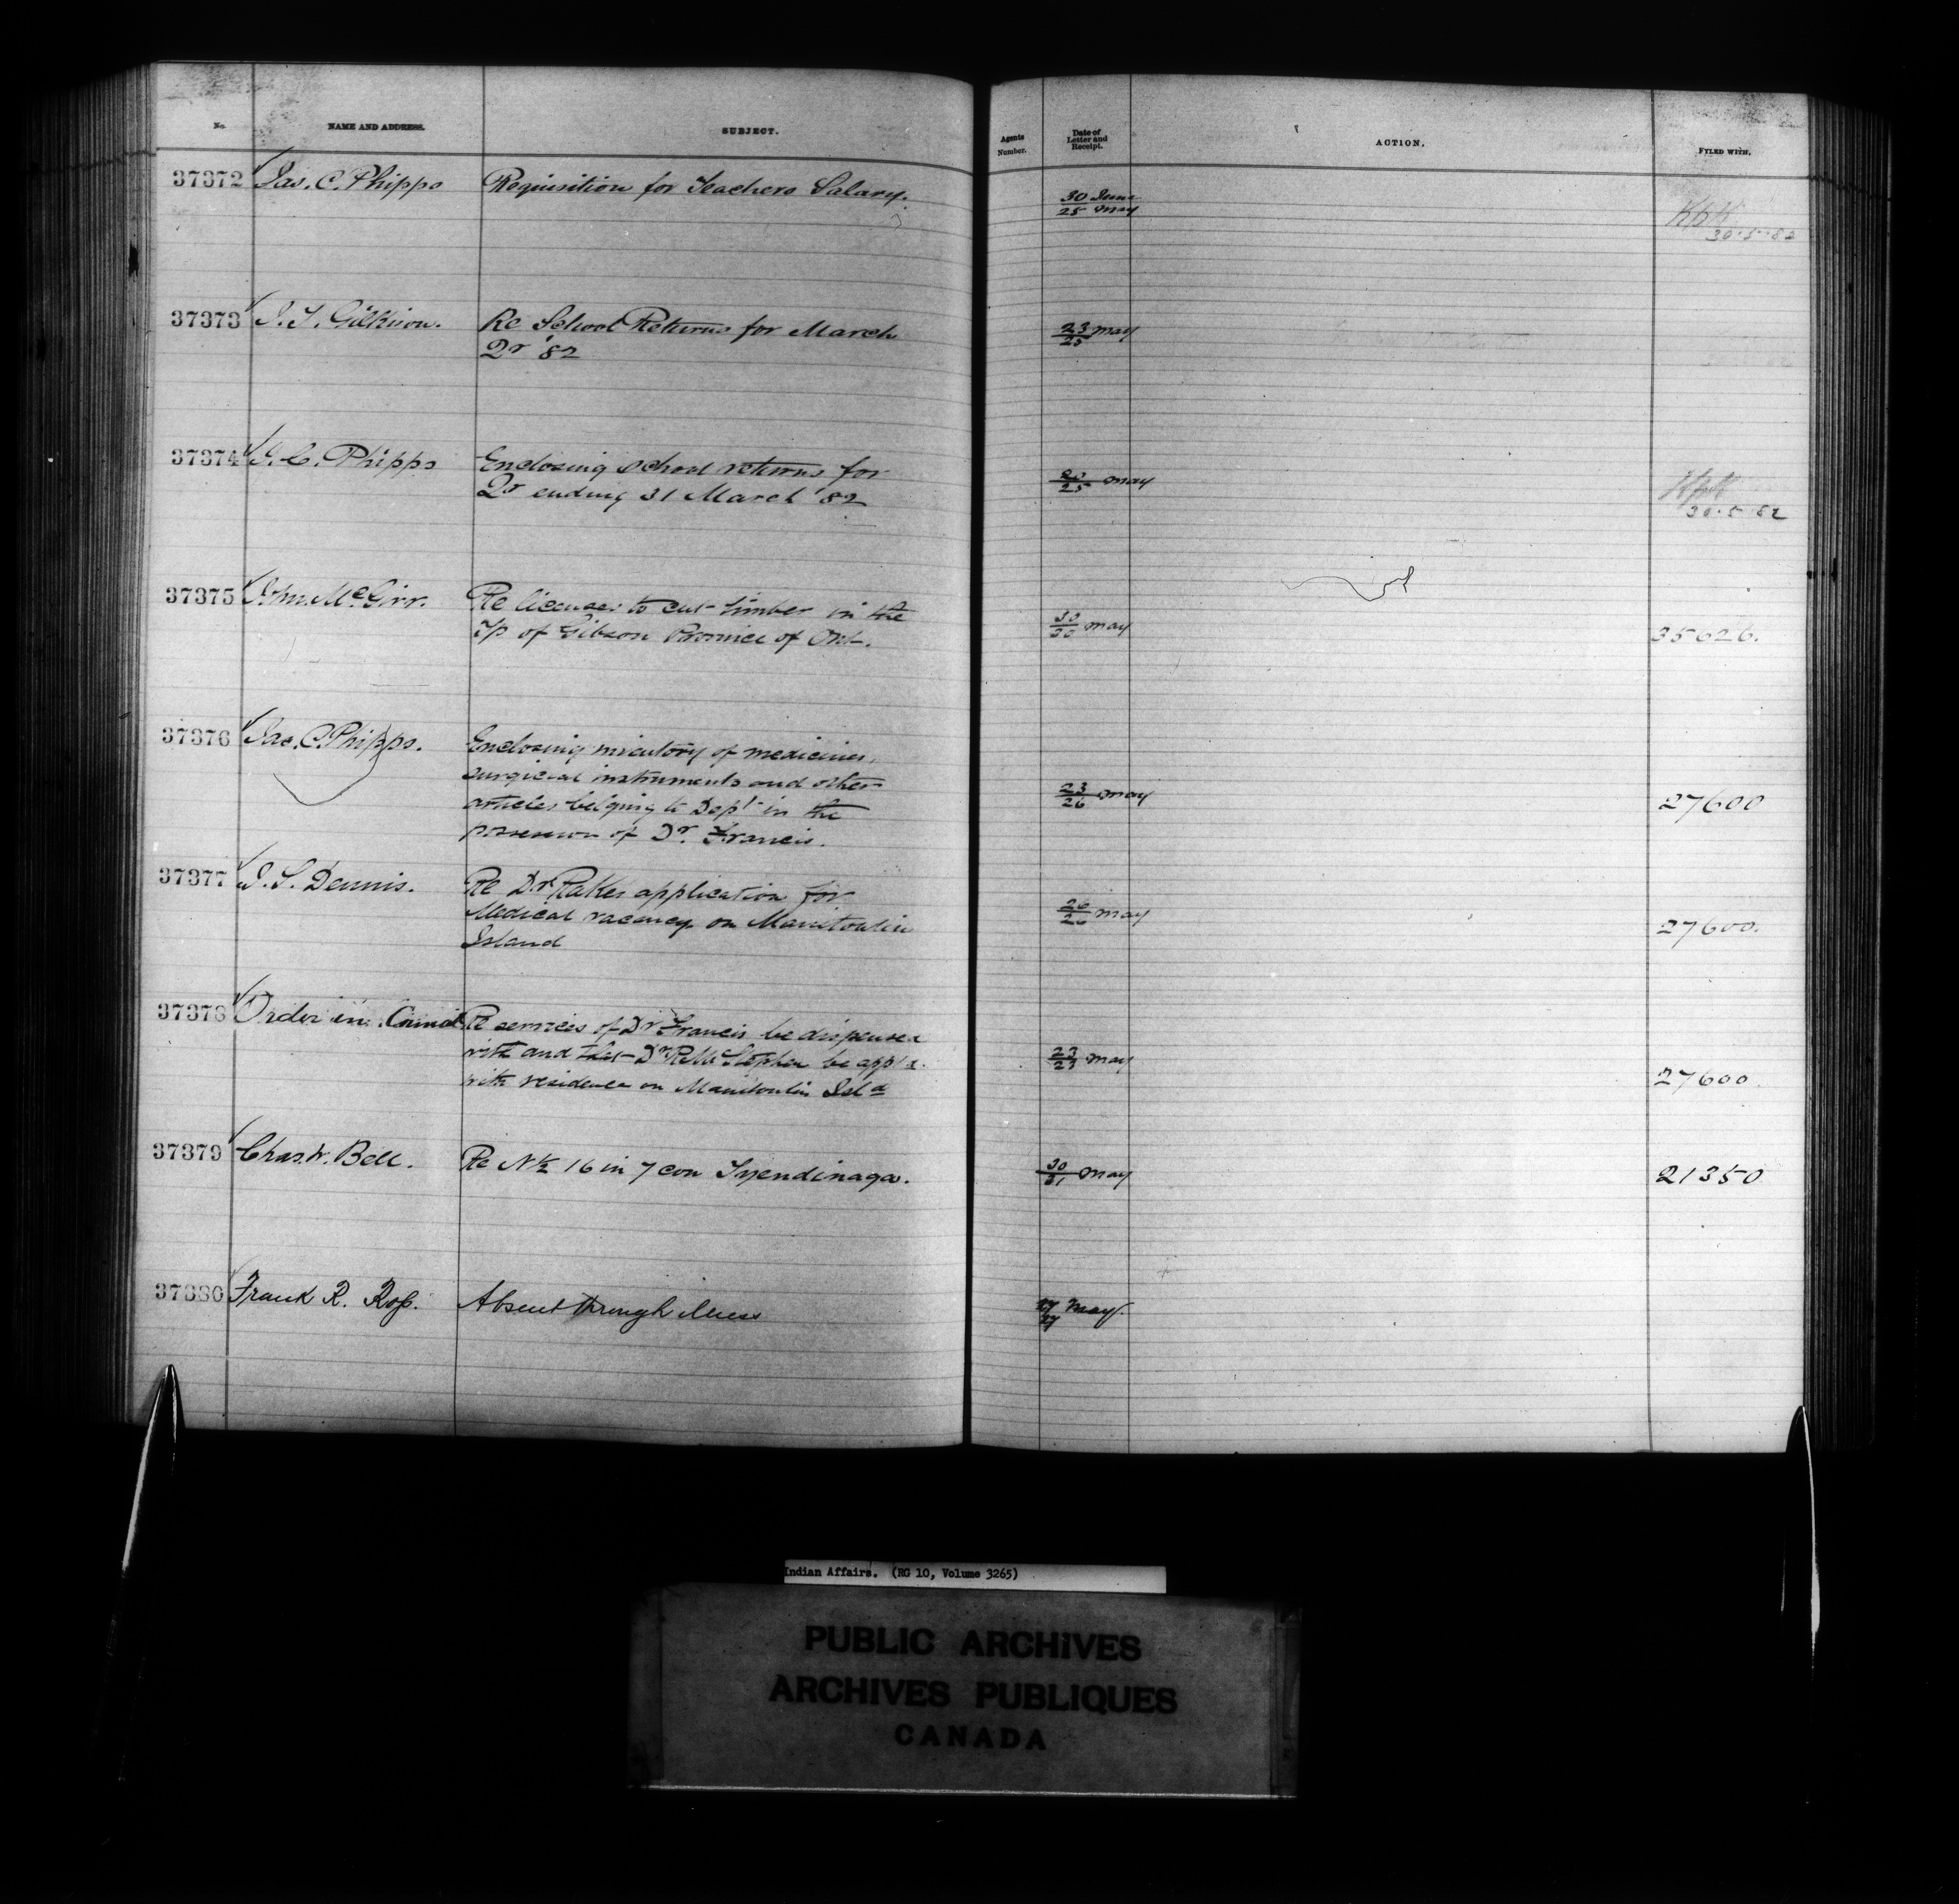 No. NAME AND ADDRESS. SUBJECT. Agents Number. Date of Letter and Receipt. ACTION. FYLED WITH.
37372 Jas. C. Phipps Requisition for Teachers Salary. 30 June / 25 May
30.5.82
37373 J. T. Gilkison. Re School Returns for March 23 / 25 May
Qr '82
37374 J. C. Phipps Enclosing school returns for
Qr ending 31 March '82 25 May
30.5.82
37375 Jno. McGirr. Re licenses to cut timber in the
Tp of Gibson Province of Ont. 30 / 30 May 35626.
37376 Jas. C. Phipps. Enclosing inventory of medicines,
surgical instruments and other
articles belging to Dept in the 23 / 26 May 27600
possession of Dr. Francis.
37377 J. S. Dennis. Re Dr application for
Medical vacancy on Manitoulin 26 / 26 May 27600.
Island
37378 Order in Council Re services of Dr Francis be dispensed
with and that Dr be app'td 23 / 23 May
with residence on Manitoulin Isld 27600.
37379 Chas. W. Bell. Re N½ 16 in 7 con Tyendinaga. 30 / 31 May 21350
37380 Frank R. Ross. Absent through illness 27 / 27 May.
Indian Affairs. (RG 10, Volume 3265)
PUBLIC ARCHIVES
ARCHIVES PUBLIQUES
CANADA